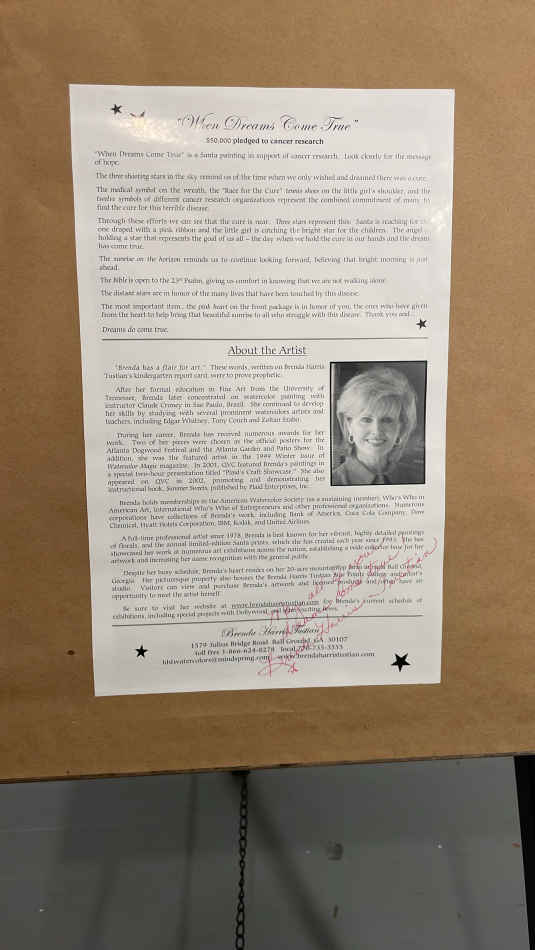 "When Dreams Come True"
$50,000 pledged to cancer research
"When Dreams Come True" is a Santa painting in support of cancer research. Look closely for the message
of hope.
The three shooting stars in the sky remind us of the time when we only wished and dreamed there was a cure.
The medical symbol on the wreath, the "Race for the Cure" tennis shoes on the little girl's shoulder, and the
twelve symbols of different cancer research organizations represent the combined commitment of many to
find the cure for this terrible disease.
Through these efforts we can see that the cure is near. Three stars represent this: Santa is reaching for the
one draped with a pink ribbon and the little girl is catching the bright star for the children. The angel is
holding a star that represents the goal of us all – the day when we hold the cure in our hands and the dream
has come true.
The sunrise on the horizon reminds us to continue looking forward, believing that bright morning is just
ahead.
The Bible is open to the 23rd Psalm, giving us comfort in knowing that we are not walking alone.
The distant stars are in honor of the many lives that have been touched by this disease.
The most important item.. the pink heart on the front package is in honor of you, the ones who have given
from the heart to help bring that beautiful sunrise to all who struggle with this disease. Thank you and...
Dreams do come true.
About the Artist
"Brenda has a flair for art." These words, written on Brenda Harris
Tustian's kindergarten report card, were to prove prophetic.
After her formal education in Fine Art from the University of
Tennessee, Brenda later concentrated on watercolor painting with
instructor Claude Croney in Sao Paulo, Brazil. She continued to develop
her skills by studying with several prominent watercolor artists and
teachers, including Edgar Whitney, Tony Couch and Zoltan Szabo.
During her career, Brenda has received numerous awards for her
work. Two of her pieces were chosen as the official posters for the
Atlanta Dogwood Festival and the Atlanta Garden and Patio Show. In
addition, she was the featured artist in the 1999 Winter issue of
Watercolor Magic magazine. In 2001, QVC featured Brenda's paintings in
a special two-hour presentation titled "Pima's Craft Showcase." She also
appeared on QVC in 2002, promoting and demonstrating her
instructional book, Summer Sonata, published by Plaid Enterprises, Inc.
Brenda holds memberships in the American Watercolor Society (as a sustaining member), Who's Who in
American Art, International Who's Who of Entrepreneurs and other professional organizations. Numerous
corporations have collections of Brenda's work, including Bank of America, Coca Cola Company, Dow
Chemical, Hyatt Hotels Corporation, IBM, Kodak, and United Airlines.
A full-time professional artist since 1978, Brenda is best known for her vibrant, highly detailed paintings
of florals, and the annual limited-edition Santa prints, which she has created each year since 1993. She has
showcased her work at numerous art exhibitions across the nation, establishing a wide collector base for her
artwork and increasing her name recognition with the general public.
Despite her busy schedule, Brenda's heart resides on her 20-acre mountaintop farm in Ball Ground,
Georgia. Her picturesque property also houses the Brenda Harris Tustian Fine Prints gallery and artist's
studio. Visitors can view and purchase Brenda's artwork and licensed products and/may have an
opportunity to meet the artist herself.
Be sure to visit her website at www.brendaharristustian.com for Brenda's current schedule of
exhibitions, including special projects with Dollywood, and other exciting news.
May all your
dreams come true
Brenda Harris Tustian
Brenda Harris Tustian
1579 Julius Bridge Road Ball Ground, GA 30107
toll free 1-866-624-8278 local 770-735-3535
bhtwatercolors@mindspring.com www.brendaharristustian.com